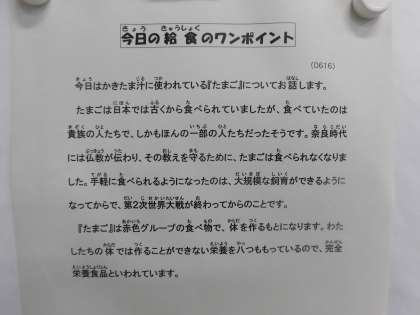 今日の給食のワンポイント
(0616)
今日はかきたま汁に使われている『たまご』についてお話します。
たまごは日本では古くから食べられていましたが、食べていたのは
貴族の人たちで、しかもほんの一部の人たちだったそうです。奈良時代
には仏教が伝わり、その教えを守るために、たまごは食べられなくなりま
した。手軽に食べられるようになったのは、大規模な飼育ができるように
なってからで、第2次世界大戦が終わってからのことです。
『たまご』は赤色グループの食べ物で、体を作るもとになります。わた
したちの体では作ることができない栄養を八つももっているので、完全
栄養食品といわれています。